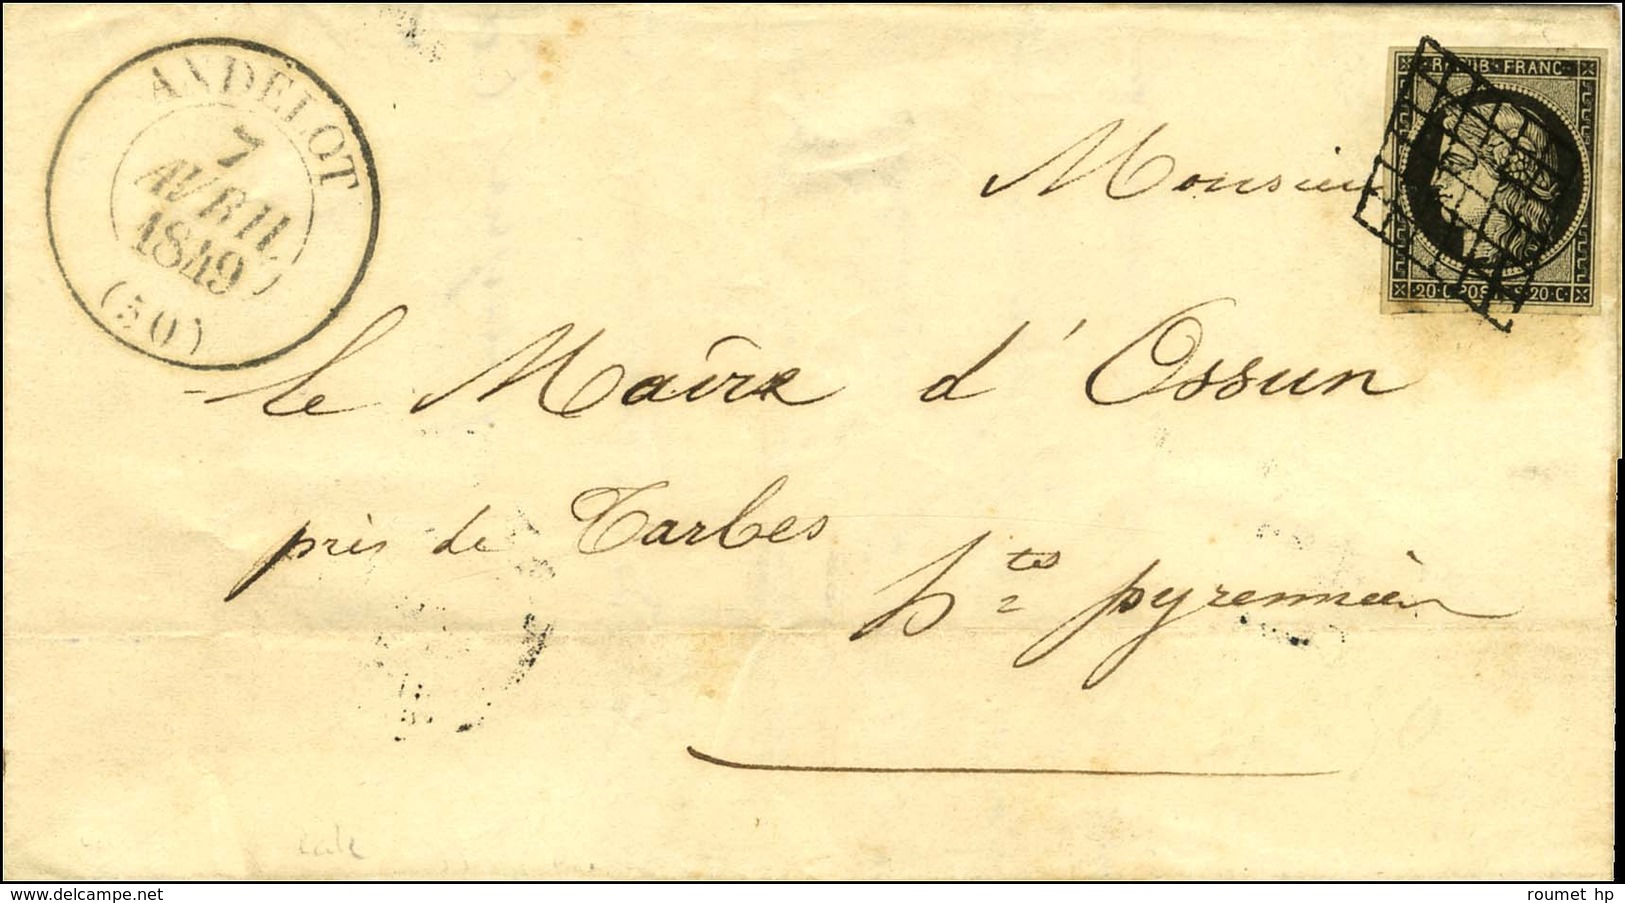 ANDELOT
7
AVRIL
1849
(50)
REPUB·FRANC·
20·C·POSTES·20·C·
Monsieur
le Maire d'Ossun
près de Tarbes
h.tes pyrennées
delcampe.net
roumet hp